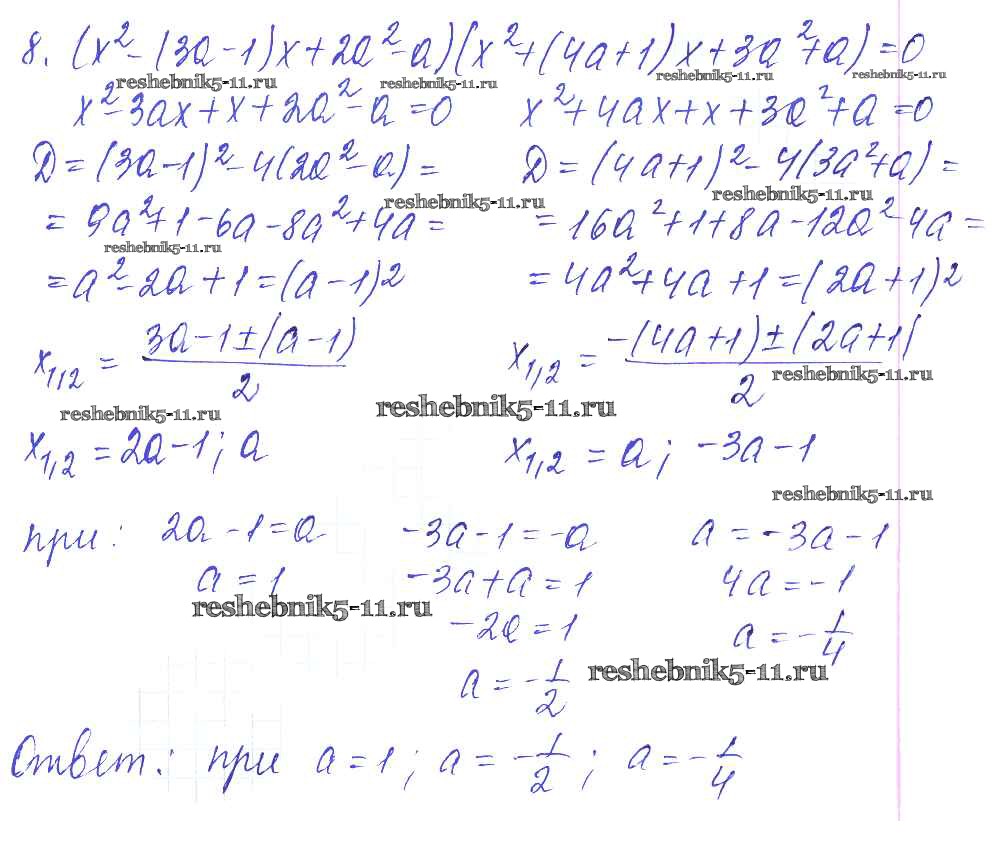 8. (x² - (3a - 1)x + 2a² - a)(x² + (4a + 1)x + 3a² + a) = 0
reshebnik5-11.ru reshebnik5-11.ru reshebnik5-11.ru reshebnik5-11.ru
x² - 3ax + x + 2a² - a = 0 x² + 4ax + x + 3a² + a = 0
Д = (3a - 1)² - 4(2a² - a) = Д = (4a + 1)² - 4(3a² + a) =
reshebnik5-11.ru reshebnik5-11.ru
= 9a² + 1 - 6a - 8a² + 4a = = 16a² + 1 + 8a - 12a² - 4a =
reshebnik5-11.ru
= a² - 2a + 1 = (a - 1)² = 4a² + 4a + 1 = (2a + 1)²
x₁,₂ = (3a - 1 ± (a - 1))/2 x₁,₂ = (-(4a + 1) ± (2a + 1))/2
reshebnik5-11.ru
reshebnik5-11.ru reshebnik5-11.ru
x₁,₂ = 2a - 1; a x₁,₂ = a; -3a - 1
reshebnik5-11.ru
при: 2a - 1 = a -3a - 1 = -a a = -3a - 1
a = 1 -3a + a = 1 4a = -1
reshebnik5-11.ru
-2a = 1 a = -1/4
reshebnik5-11.ru
a = -1/2
Ответ: при a = 1; a = -1/2; a = -1/4